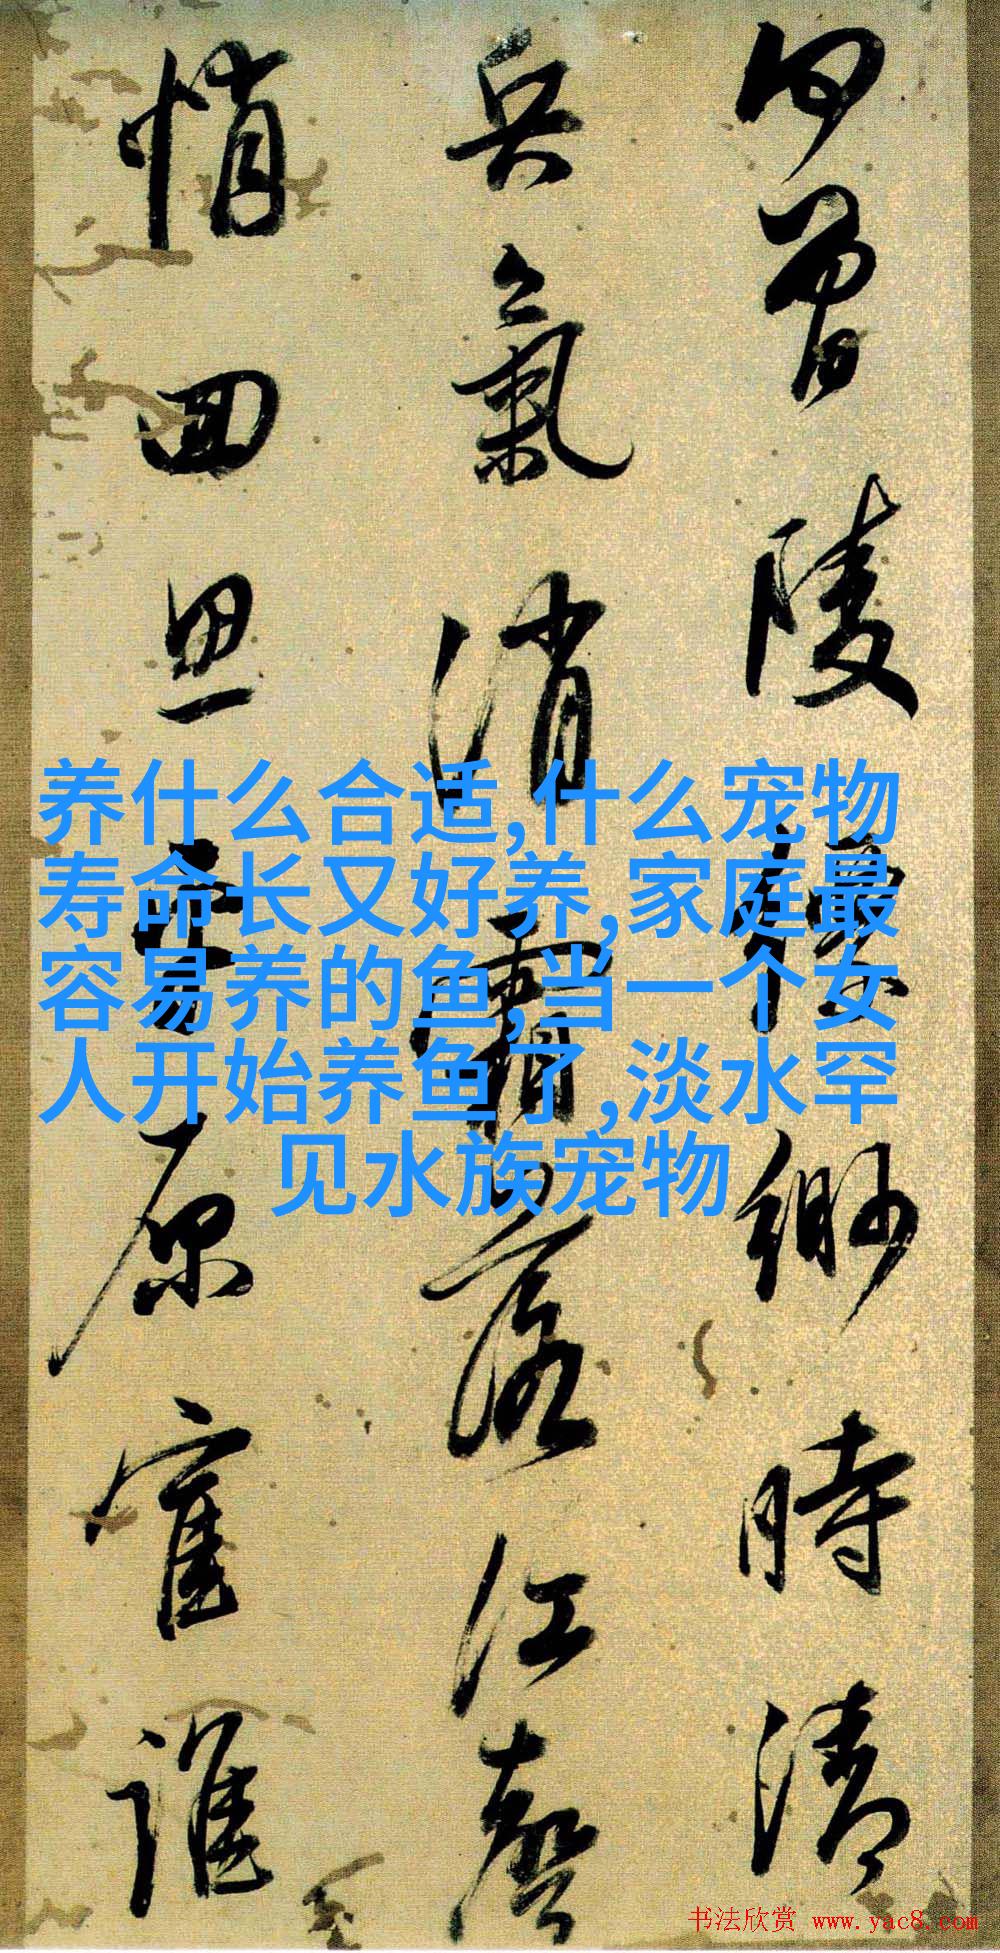 养什么合适,什么宠物
寿命长又好养,家庭最
容易养的鱼,当一个女
人开始养鱼了,淡水罕
见水族宠物
曾陵缈時清
兵氣消霜落江聲
悄回思原誰
书法欣赏 www.yac8.com